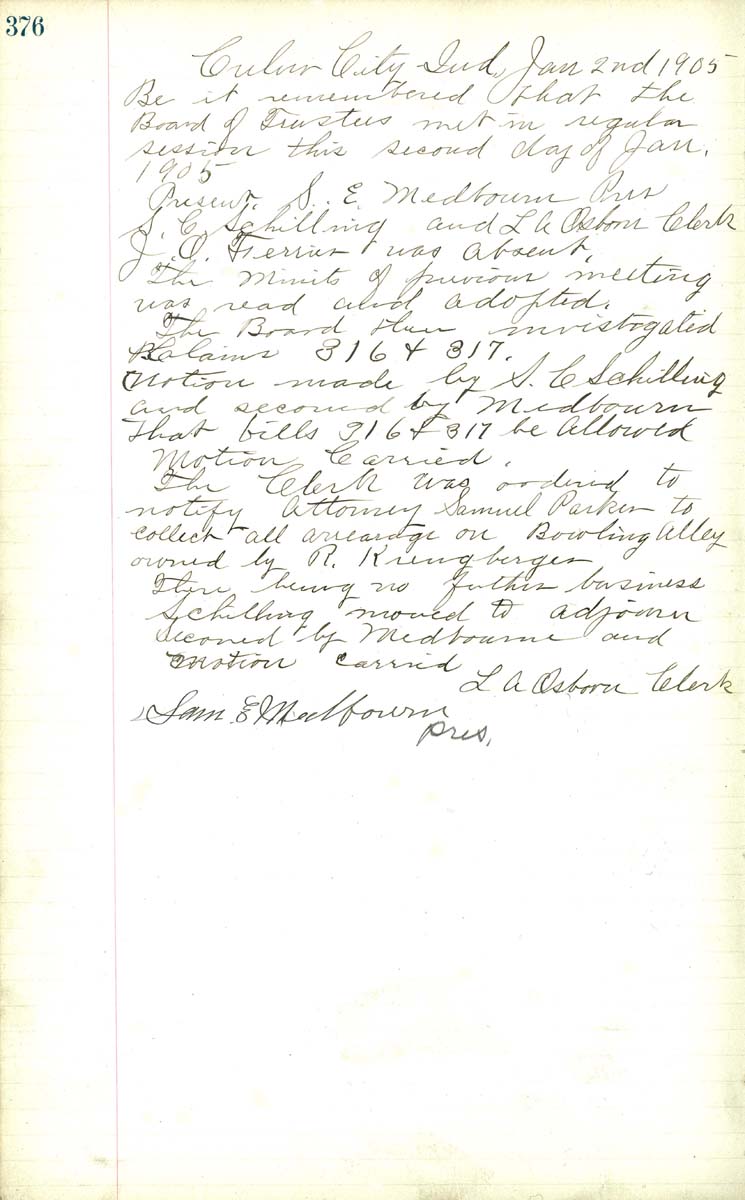 376
Culver City Ind, Jan 2nd 1905
Be it remembered that the
Board of Trustees met in regular
session this second day of Jan.
1905
Present, S. E. Medbourn Pres
S. C. Schilling and L A Osborn Clerk
J. O. Ferrier was absent,
The minits of previous meeting
was read and adopted.
The Board then invistogated
Claims 316 & 317.
Motion made by S. C Schilling
and second by Medbourn
that bills 316 & 317 be allowed
Motion Carried.
The Clerk was ordired to
notify Attorney Samuel Parker to
collect all arearage on Bowling Alley
owned by R. Kreugberger
There being no futher business
Schilling moved to adjourn
seconed by Medbourne and
motion carrid
L A Osborn Clerk
Sam. E Medbourn
Pres,